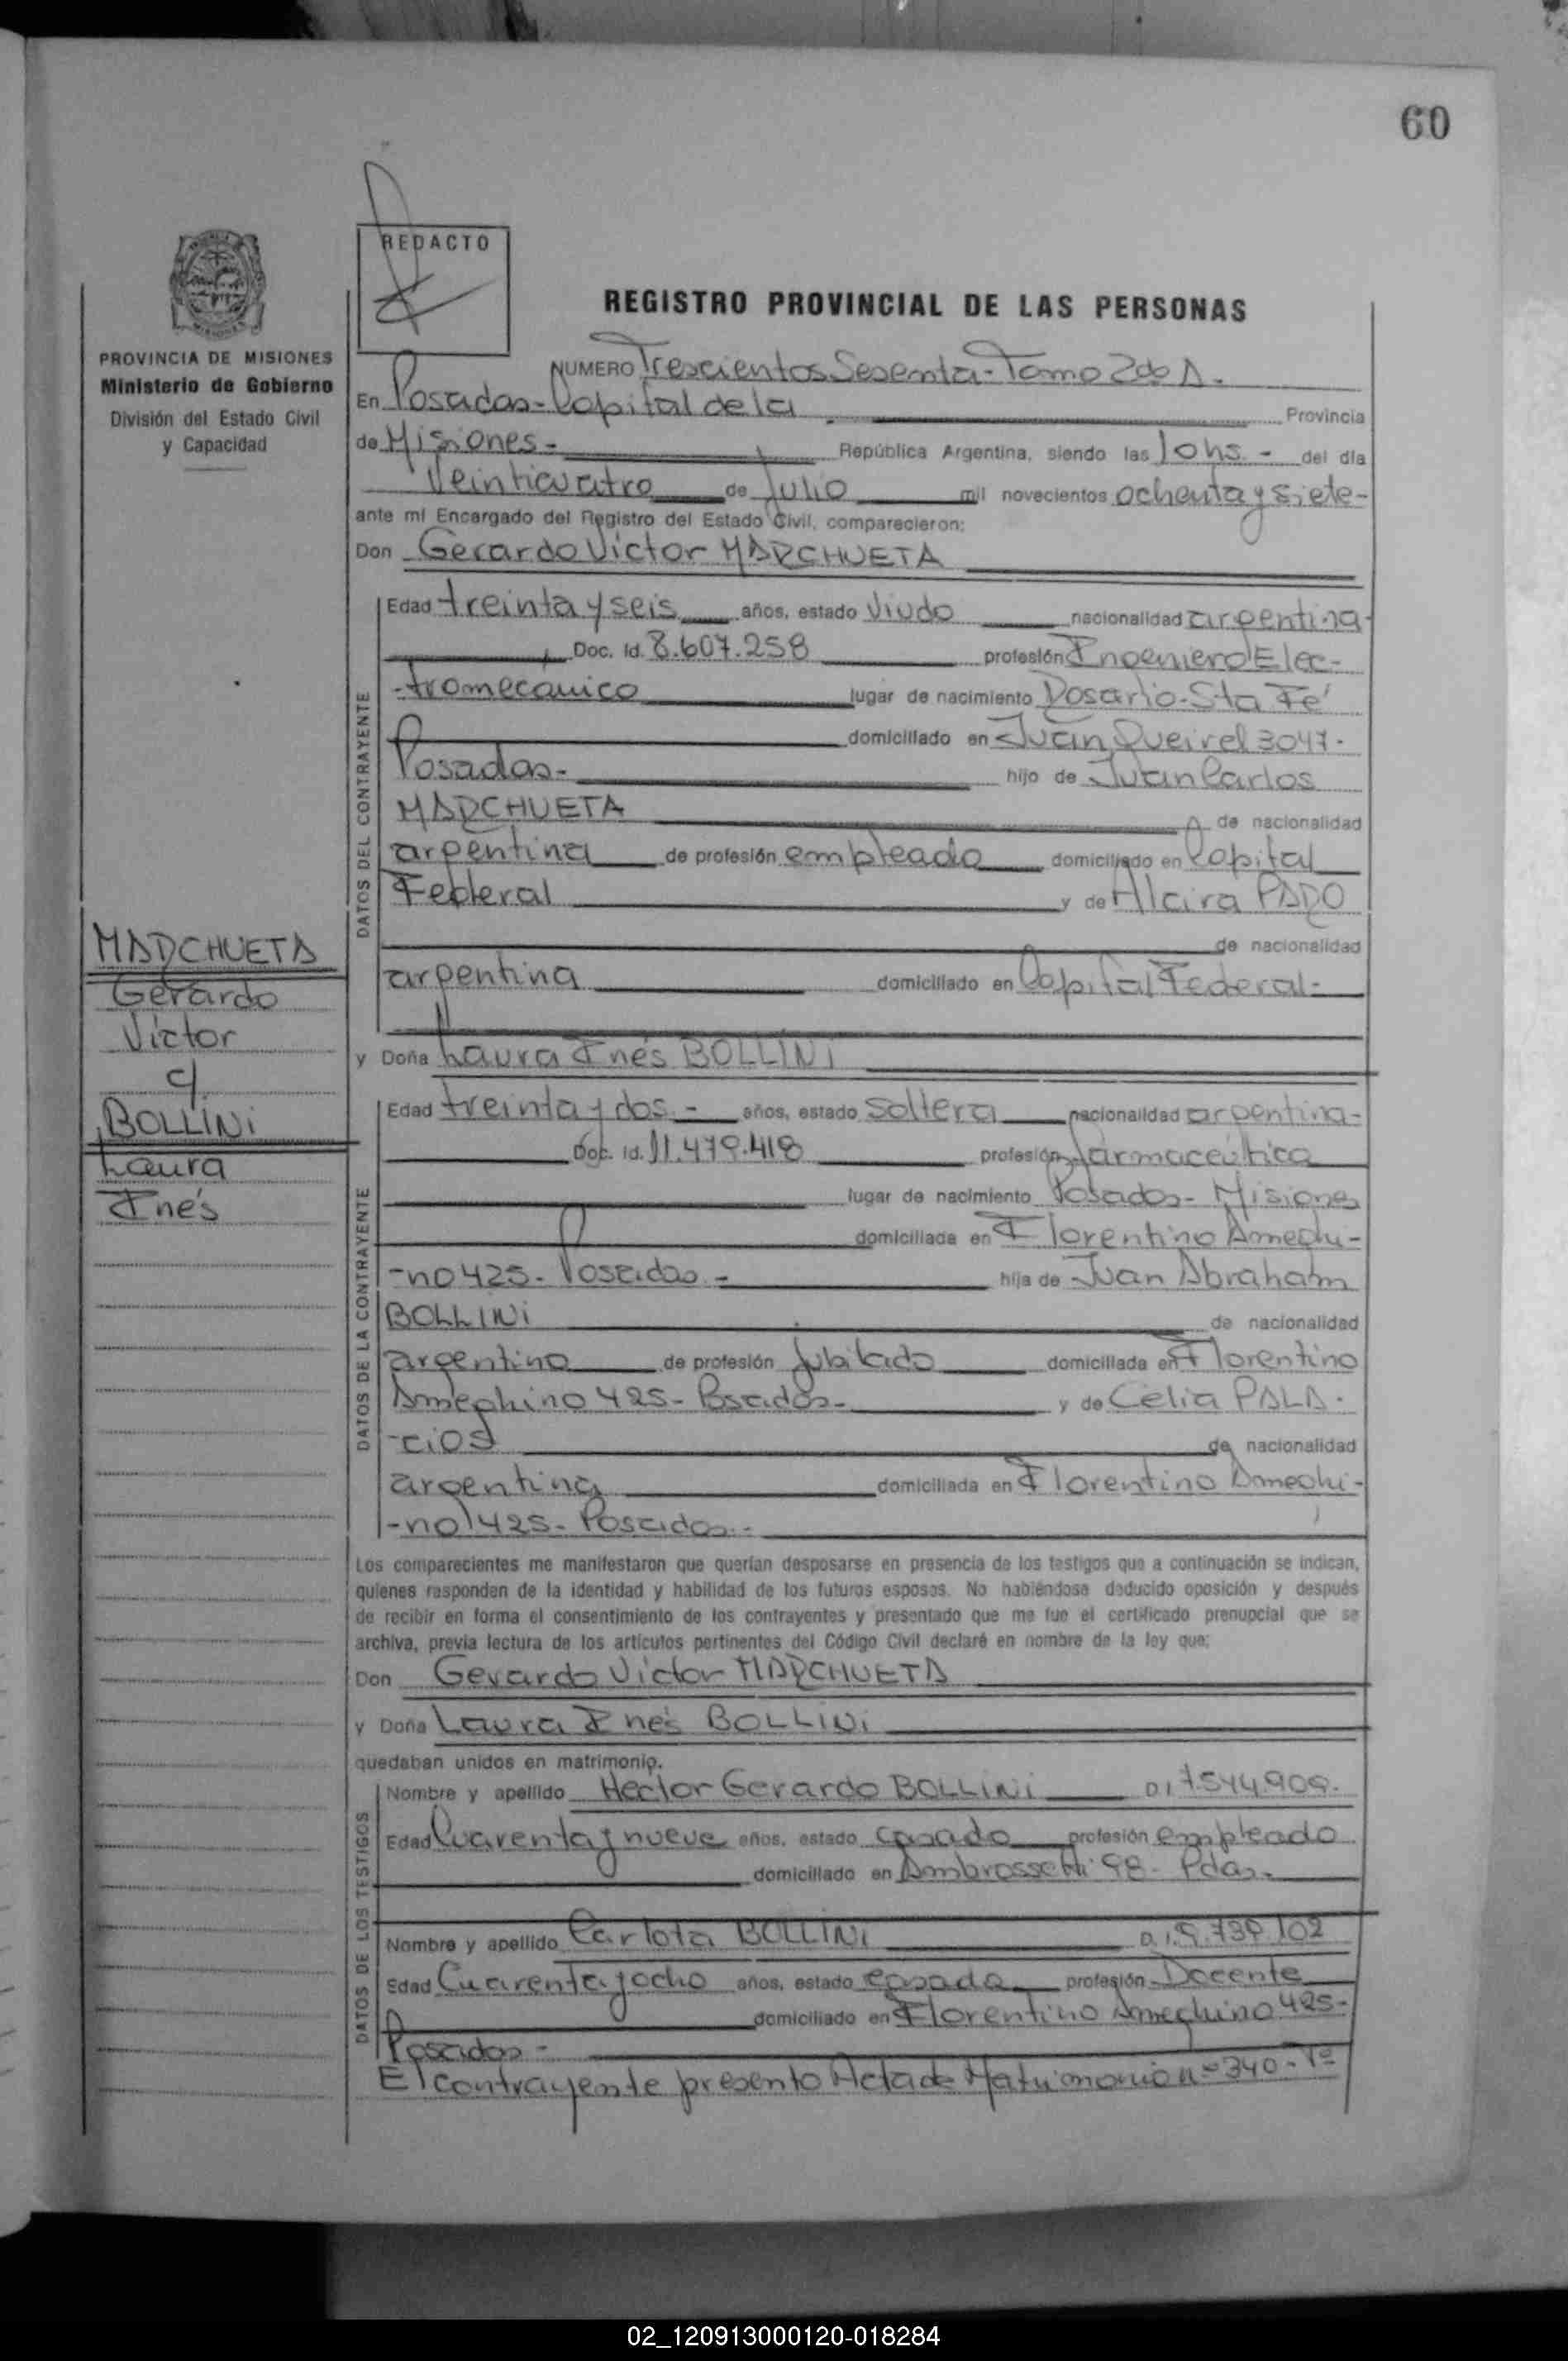 60
REDACTO
REGISTRO PROVINCIAL DE LAS PERSONAS
PROVINCIA DE MISIONES
Ministerio de Gobierno
División del Estado Civil
y Capacidad
NUMERO Trescientos Sesenta - Tomo 2do A.
En Posadas - Capital de la Provincia
de Misiones - República Argentina, siendo las 10 hs. - del día
Veinticuatro de Julio mil novecientos ochenta y siete -
ante mí Encargado del Registro del Estado Civil, comparecieron:
Don Gerardo Victor MARCHUETA
DATOS DEL CONTRAYENTE
Edad treinta y seis años, estado Viudo nacionalidad argentina -
Doc. Id. 8.607.258 profesión Ingeniero Elec-
-tromecánico lugar de nacimiento Rosario - Sta Fé
domiciliado en Juan Queirel 3047 -
Posadas - hijo de Juan Carlos
MARCHUETA de nacionalidad
argentina de profesión empleado domiciliado en Capital
Federal y de Alcira PARO
de nacionalidad
argentina domiciliado en Capital Federal -
y Doña Laura Inés BOLLINI
MARCHUETA
Gerardo
Victor
c/
BOLLINI
Laura
Inés
DATOS DE LA CONTRAYENTE
Edad treinta y dos - años, estado Soltera nacionalidad argentina -
Doc. Id. 11.479.418 profesión farmaceútica
lugar de nacimiento Posadas - Misiones
domiciliada en Florentino Ameghi-
-no 425 - Posadas - hija de Juan Abraham
BOLLINI de nacionalidad
argentino de profesión Jubilado domiciliada en Florentino
Ameghino 425 - Posadas - y de Celia PALA-
-CIOS de nacionalidad
argentina domiciliada en Florentino Ameghi-
-no 425 - Posadas -
Los comparecientes me manifestaron que querían desposarse en presencia de los testigos que a continuación se indican,
quienes responden de la identidad y habilidad de los futuros esposos. No habiéndose deducido oposición y después
de recibir en forma el consentimiento de los contrayentes y presentado que me fue el certificado prenupcial que se
archiva, previa lectura de los artículos pertinentes del Código Civil declaré en nombre de la ley que:
Don Gerardo Victor MARCHUETA
y Doña Laura Inés BOLLINI
quedaban unidos en matrimonio.
DATOS DE LOS TESTIGOS
Nombre y apellido Hector Gerardo BOLLINI D.I 7.544.909.
Edad Cuarenta y nueve años, estado casado profesión empleado
domiciliado en Ambrossetti 98 - Pdas.
Nombre y apellido Carlota BOLLINI D.I. 5.739.102
Edad Cuarenta y ocho años, estado casada profesión Docente
domiciliado en Florentino Ameghino 425 -
Posadas -
El contrayente presento Acta de Matrimonio nº 340 - Tº
02_120913000120-018284